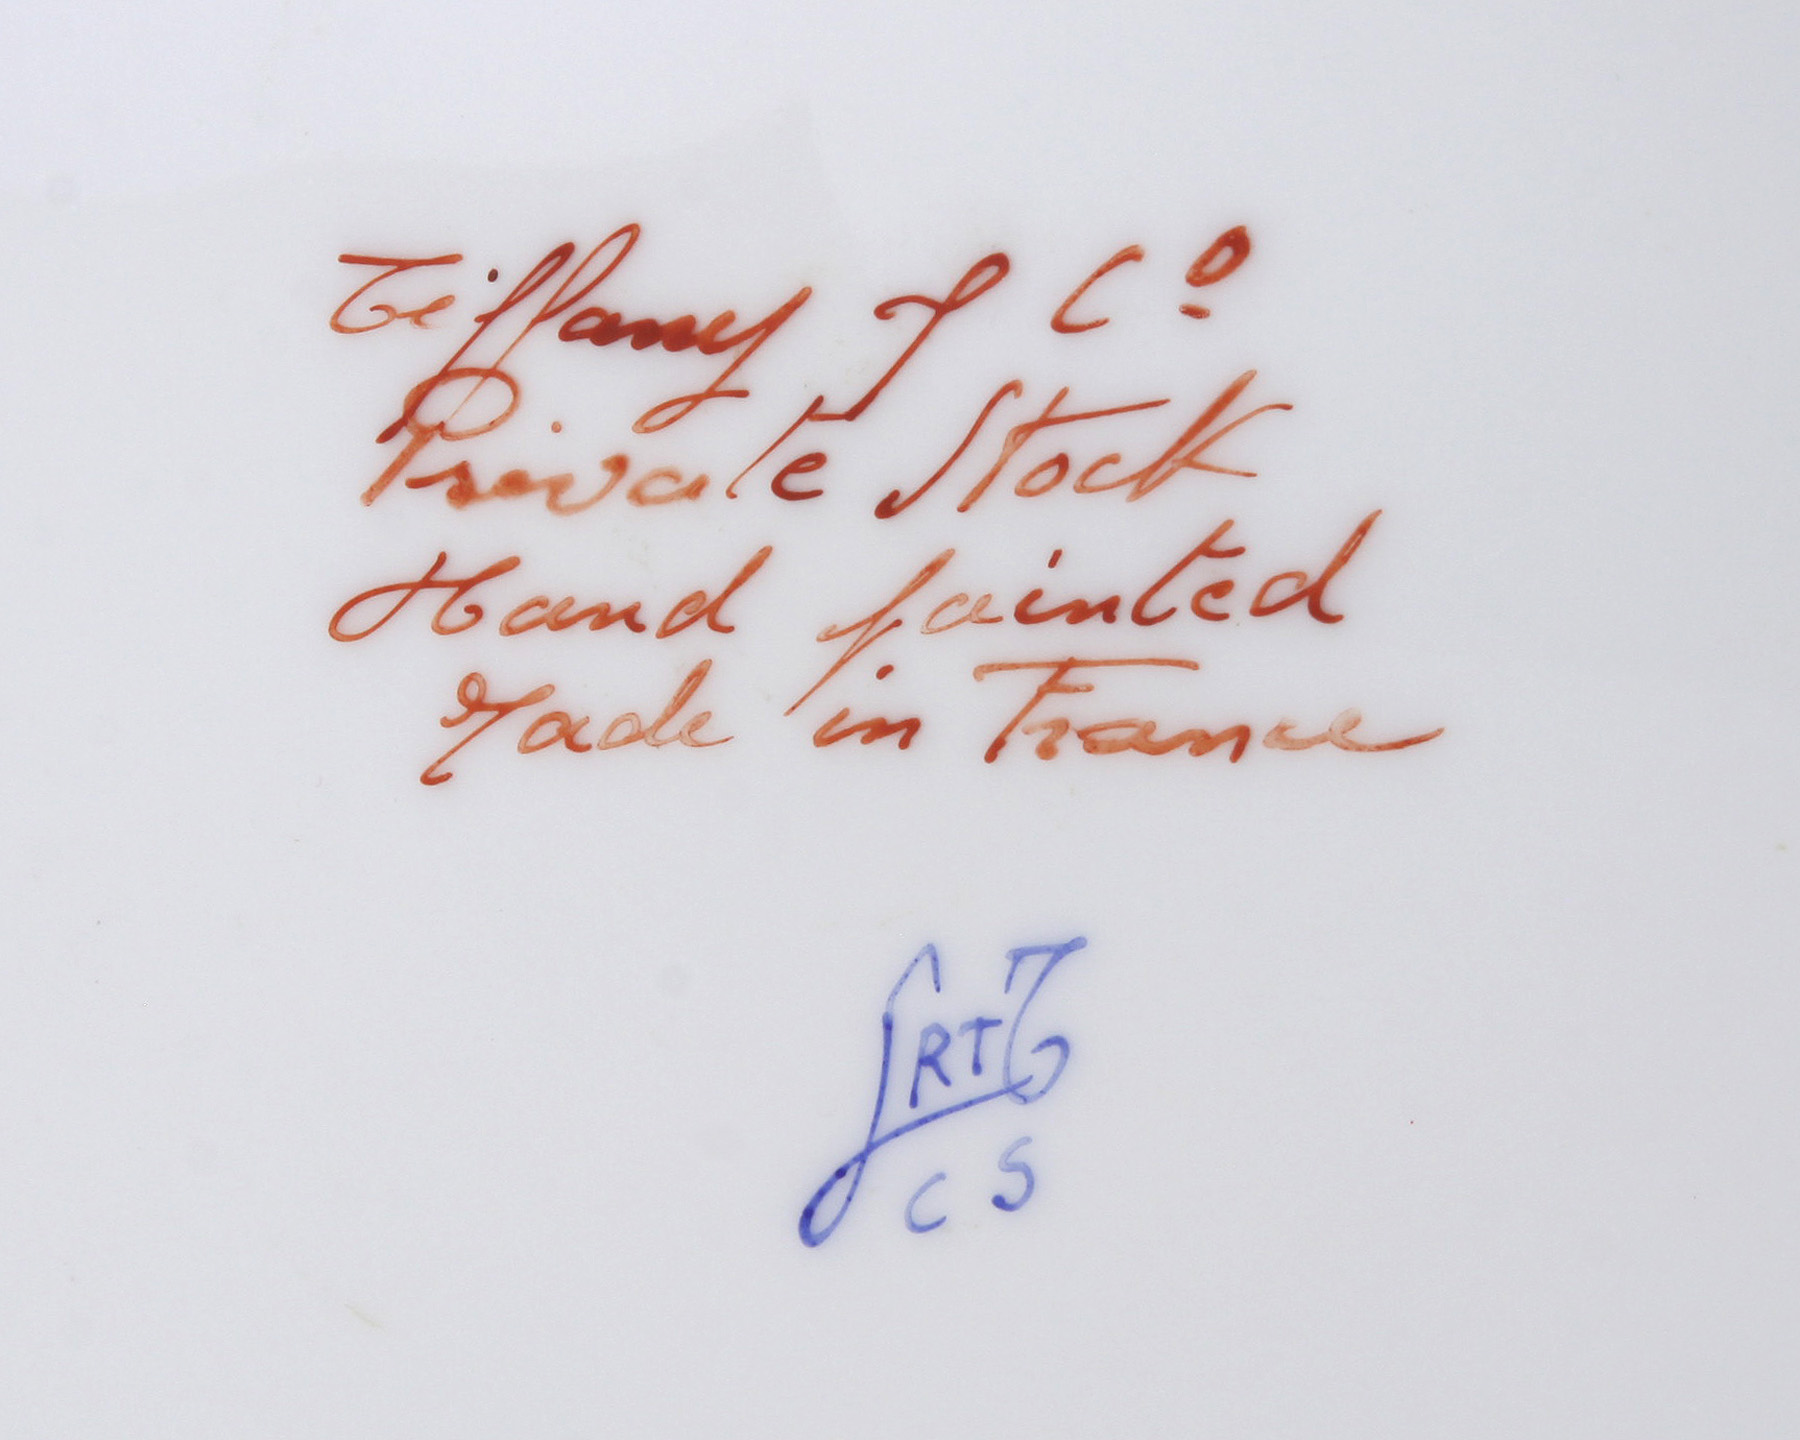 Tiffany & Cº
Private Stock
Hand painted
Made in France
RT
C S